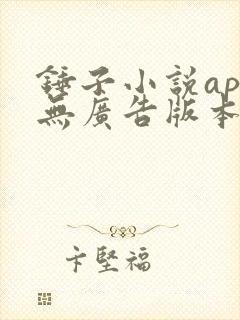 錘子小說ap
無廣告版本
卞堅福